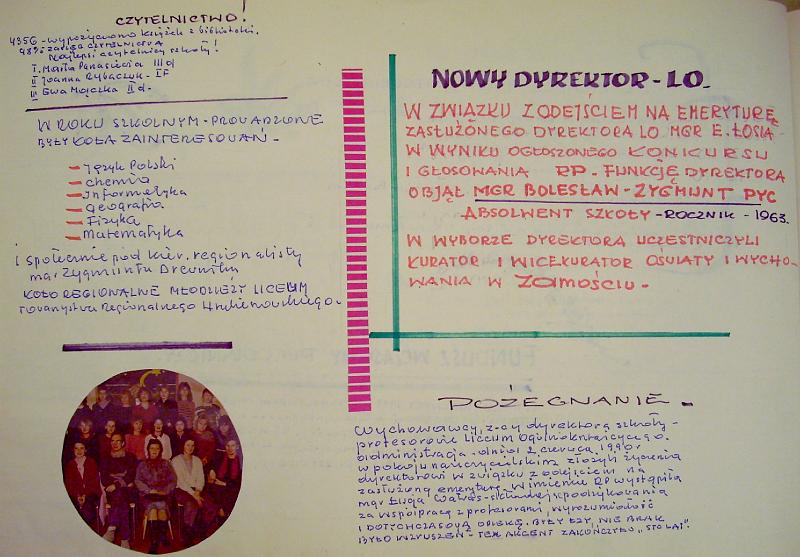 CZYTELNICTWO!
4356 - wypożyczono książek z biblioteki.
48% zasięg czytelnictwa
Najlepsi czytelnicy szkoły!
I. Marta Panasiewicz III d
II Joanna Rybaczuk - I F
III Ewa Mączka II d.
W ROKU SZKOLNYM - PROWADZONE
BYŁY KOŁA ZAINTERESOWAŃ -
— Język Polski
— chemia
— Informatyka
— Geografia
— Fizyka
— Matematyka
i społecznie pod kier. regionalisty
mgr Zygmunta
KOŁO REGIONALNE MŁODZIEŻY LICEUM
Towarzystwa Regionalnego Hrubieszowskiego.
NOWY DYREKTOR - LO.
W ZWIĄZKU Z ODEJŚCIEM NA EMERYTURĘ
ZASŁUŻONEGO DYREKTORA LO MGR E. ŁOSIA
W WYNIKU OGŁOSZONEGO KONKURSU
I GŁOSOWANIA RP. FUNKCJĘ DYREKTORA
OBJĄŁ MGR BOLESŁAW - ZYGMUNT PYC
ABSOLWENT SZKOŁY - ROCZNIK - 1963.
W WYBORZE DYREKTORA UCZESTNICZYLI
KURATOR I WICEKURATOR OŚWIATY I WYCHO-
WANIA W ZAMOŚCIU.
POŻEGNANIE -
Wychowawcy, z-cy dyrektora szkoły -
profesorowie Liceum Ogólnokształcącego.
administracja - dnia czerwca 1990 r
w pokoju nauczycielskim złożyli życzenia
dyrektorowi w związku z odejściem na
zasłużoną emeryturę. W imieniu RP wystąpiła
mgr składając podziękowania
za współpracę z profesorami, wyrozumiałość
I DOTYCHCZASOWĄ OPIEKĘ. BYŁY ŁZY, NIE BRAK
BYŁO WZRUSZEŃ - TEN AKCENT ZAKOŃCZYŁO „STO LAT”